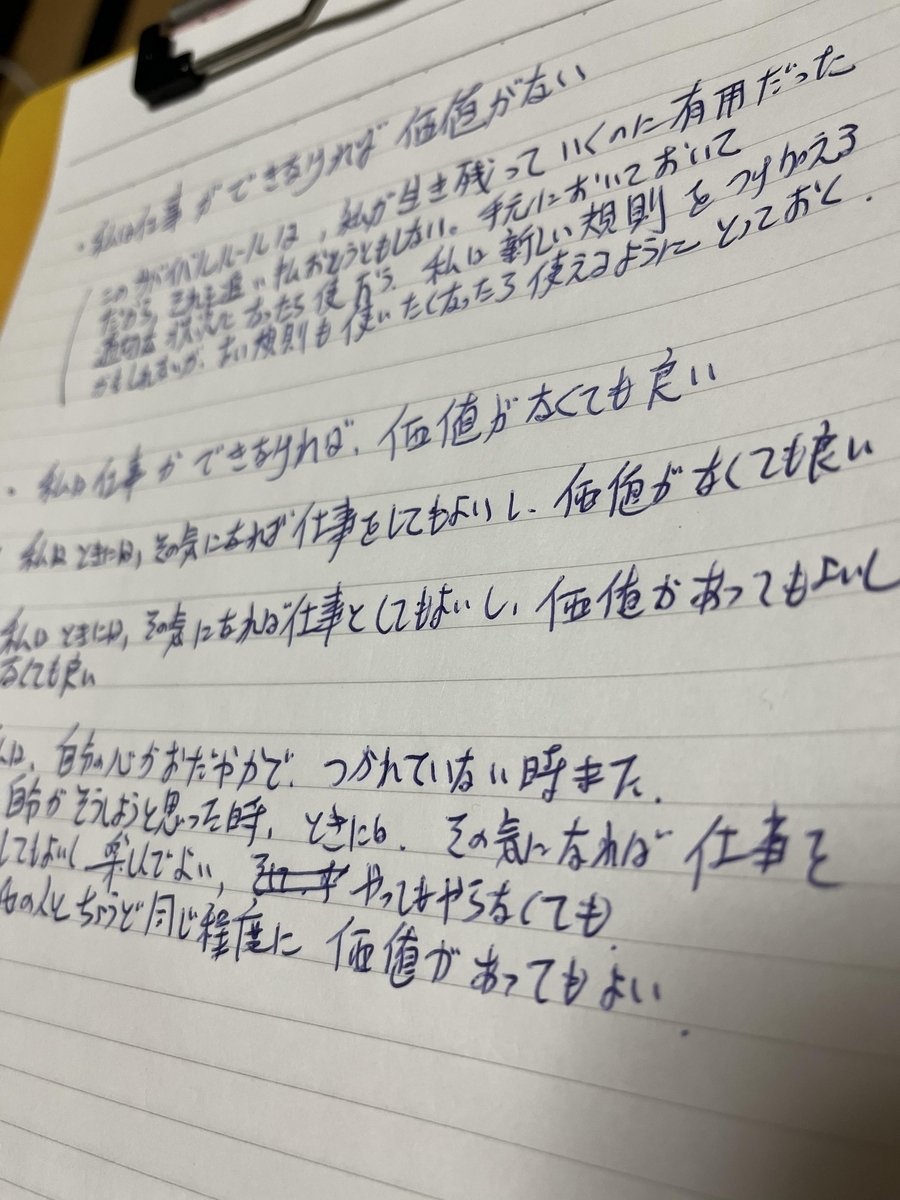 ・私は仕事ができなければ価値がない
このサバイバルルールは，私が生き残っていくのに有用だった
だから，それを追い払おうともしない。手元においておいて
適切な状況になったら使おう．私は新しい規則をつけ加える
かもしれないが，古い規則も使いたくなったら使えるようにとっておく．
・私は仕事ができなければ，価値がなくても良い
・私はときには，その気になれば仕事をしてもよいし，価値がなくても良い
私はときには，その気になれば仕事をしてもよいし，価値があってもよいし
なくても良い
私は，自分の心がおだやかで，つかれていない時また，
自分がそうしようと思った時，ときには，その気になれば仕事を
してもよいし楽しんでよい，やってもやらなくても，
他の人とちょうど同じ程度に価値があってもよい．